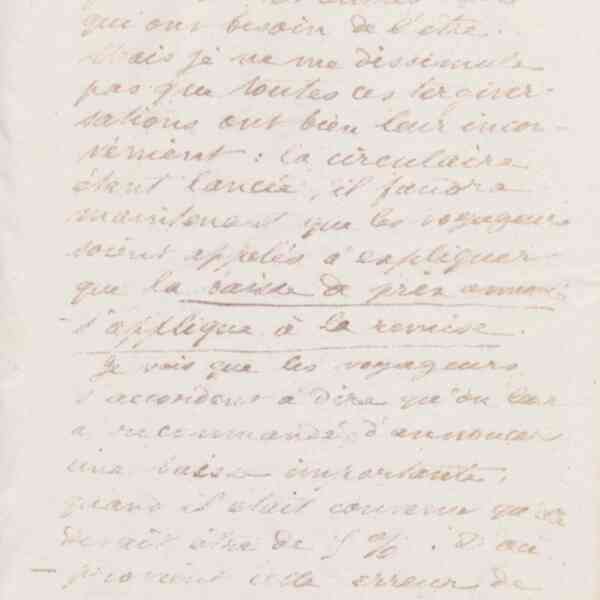 qui ont besoin de l'être.
Mais je ne me dissimule
pas que toutes ces tergiver-
sations ont bien leur incon-
vénient : la circulaire
étant lancée, il faudra
maintenant que les voyageurs
soient appelés à expliquer
que la baisse de prix
s'applique à la remise.
Je vois que les voyageurs
s'accordent à dire qu'on leur
a recommandé d'annoncer
une baisse importante,
quand il était convenu qu'elle
devait être de 5 %. D'où
provient cette erreur de